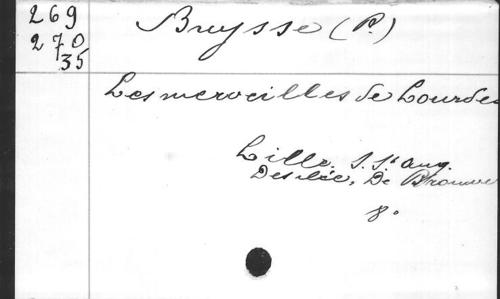 269
270
35
Bruysse (P.)
Les merveilles de Lourdes
Lille. S. St Aug.
Desclée, De Brouwe
8°